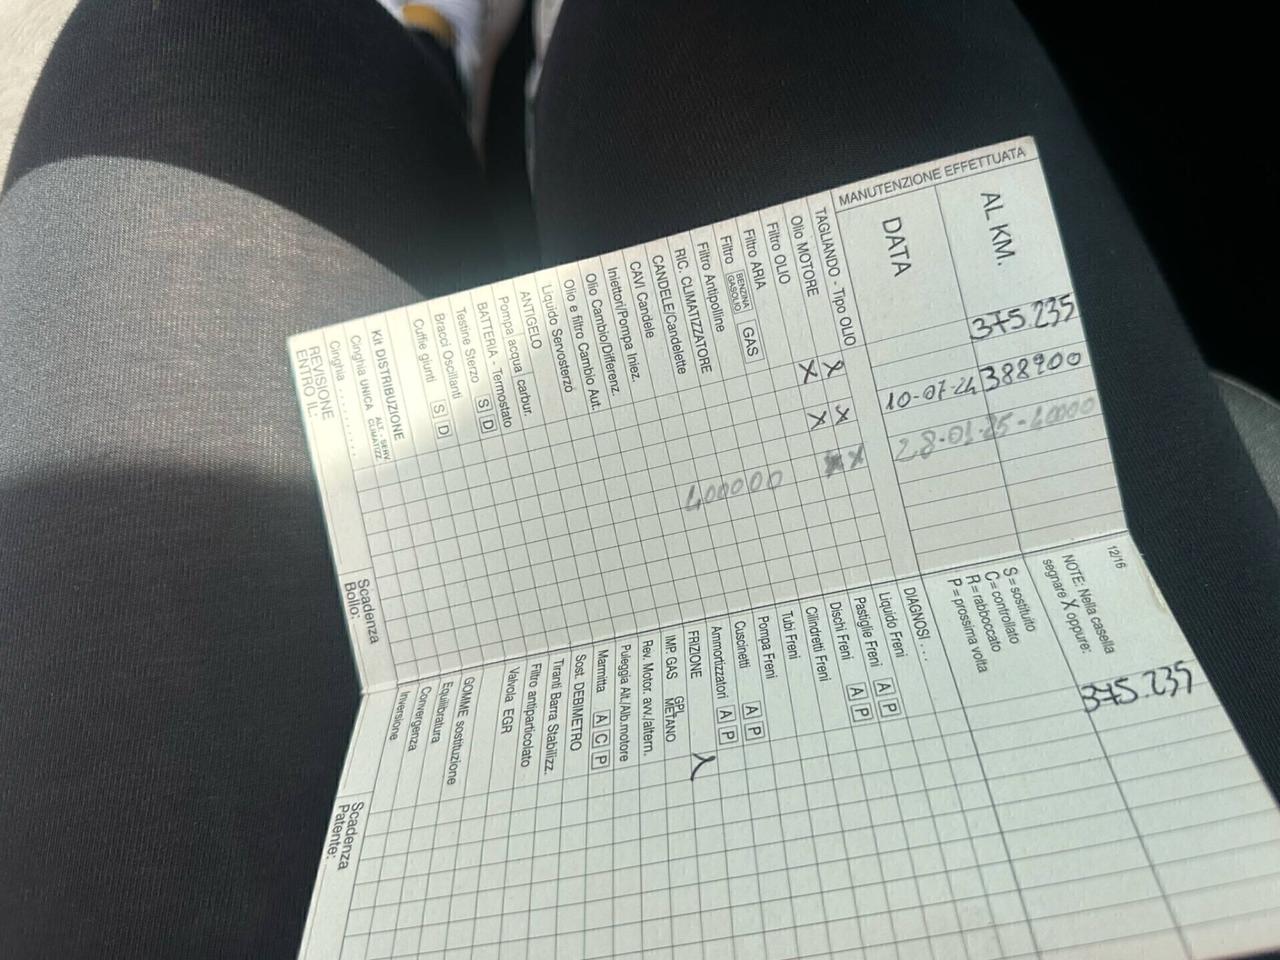 MANUTENZIONE EFFETTUATA
AL KM.
375.235
388900
DATA
10-07-24
TAGLIANDO - Tipo OLIO X X X
Olio MOTORE X X
Filtro OLIO
Filtro ARIA
Filtro BENZINA GASOLIO GAS
Filtro Antipolline
RIC. CLIMATIZZATORE
CANDELE/Candelette
CAVI Candele
Iniettori/Pompa Iniez.
Olio Cambio/Differenz.
Olio e filtro Cambio Aut.
Liquido Servosterzo
ANTIGELO
Pompa acqua carbur.
BATTERIA - Termostato
Testine Sterzo S D
Bracci Oscillanti
Cuffie giunti S D
Kit DISTRIBUZIONE
Cinghia UNICA ALT. - SERV. CLIMATIZZ.
Cinghia ..........
REVISIONE
ENTRO IL:
Scadenza
Bollo:
12/16
NOTE: Nella casella
segnare X oppure:
S = sostituito
C = controllato
R = rabboccato
P = prossima volta
375.235
DIAGNOSI ...
Liquido Freni
Pastiglie Freni A P
Dischi Freni A P
Cilindretti Freni
Tubi Freni
Pompa Freni
Cuscinetti A P
Ammortizzatori A P
FRIZIONE
IMP. GAS GPL METANO
Rev. Motor. avv./altern.
Puleggia Alt./Alb.motore
Marmitta A C P
Sost. DEBIMETRO
Tiranti Barra Stabilizz.
Filtro antiparticolato
Valvola EGR
GOMME sostituzione
Equilibratura
Convergenza
Inversione
Scadenza
Patente: